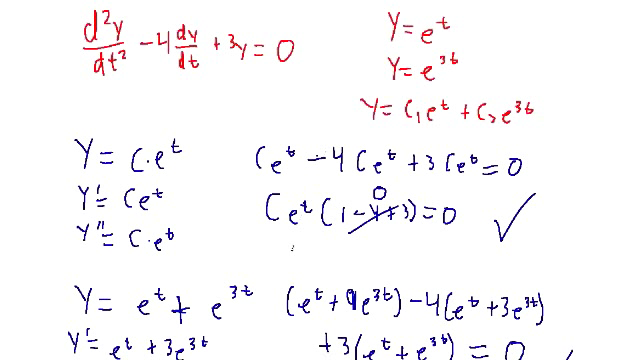 d²y/dt² - 4 dy/dt + 3y = 0
y = e^t
y = e^3t
y = c₁e^t + c₂e^3t
y = C·e^t
y' = Ce^t
y'' = C·e^t
Ce^t - 4Ce^t + 3Ce^t = 0
Ce^t (1 - 4 + 3) = 0 ✓
0
y = e^t + e^3t
y' = e^t + 3e^3t
(e^t + 9e^3t) - 4(e^t + 3e^3t)
+3(e^t + e^3t) = 0